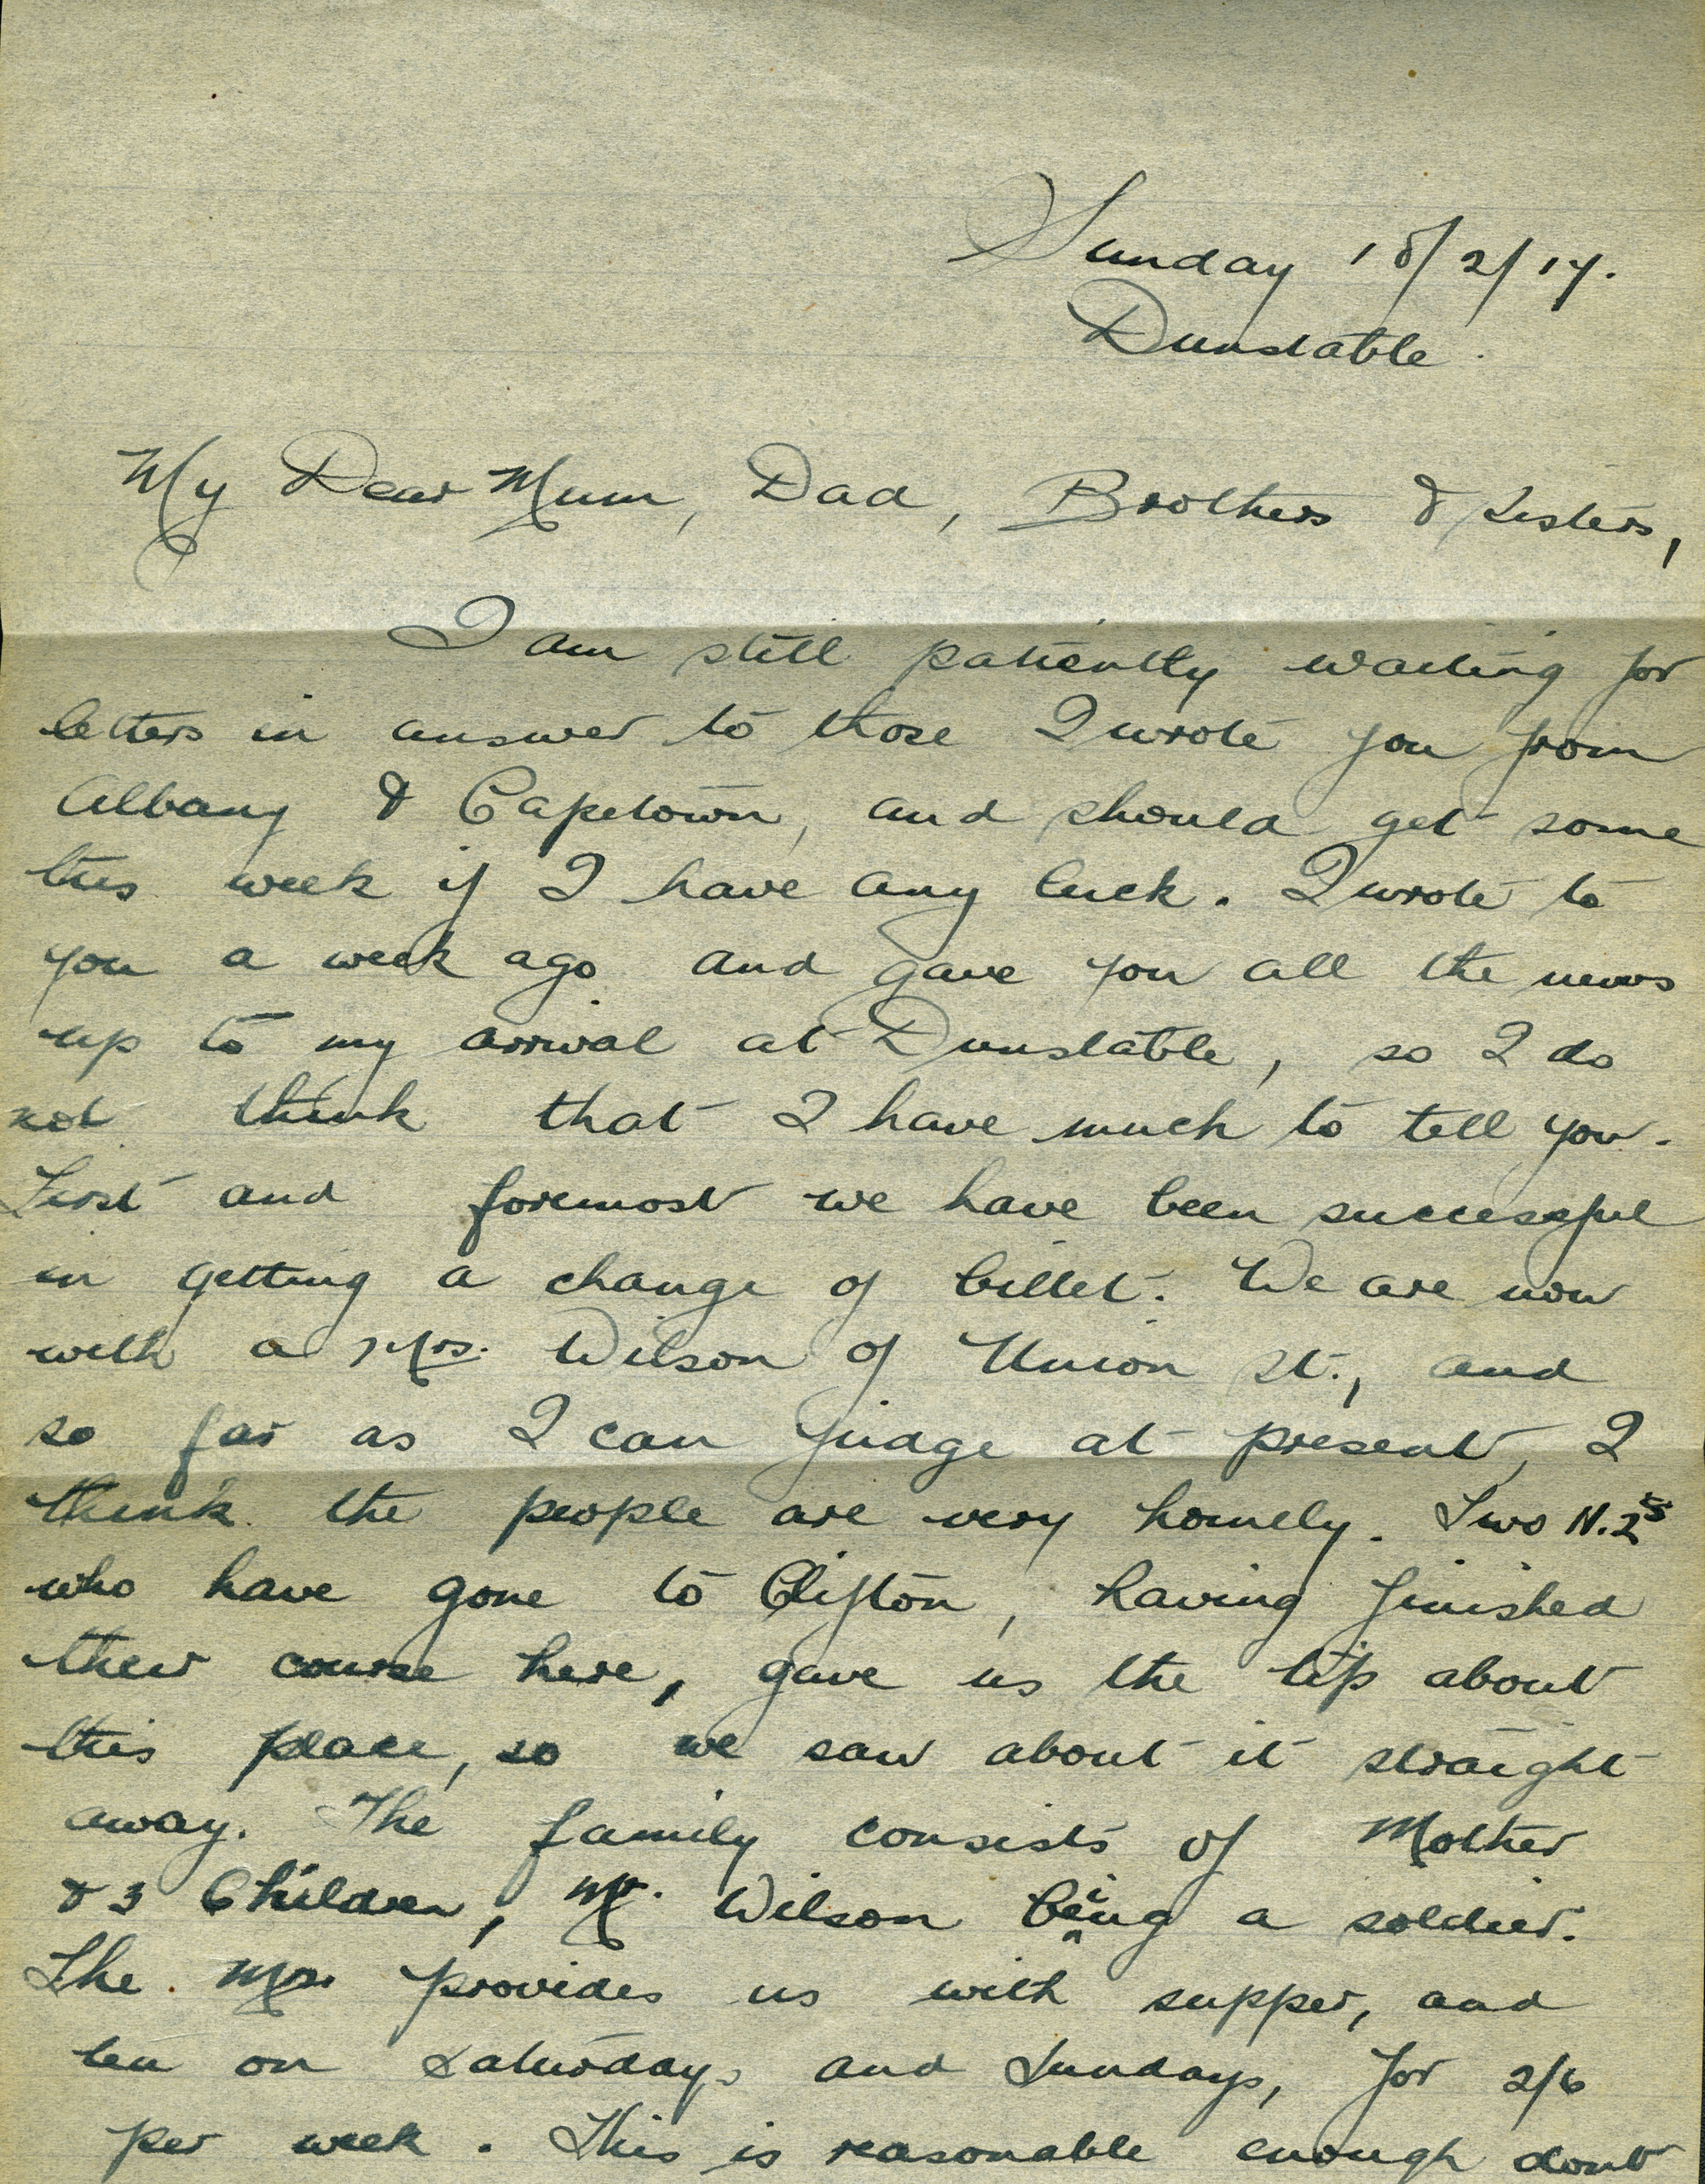 Sunday 18/2/17.
Dunstable.
My Dear Mum, Dad, Brothers & Sisters,
I am still patiently waiting for
letters in answer to those I wrote you from
Albany & Capetown, and should get some
this week if I have any luck. I wrote to
you a week ago and gave you all the news
up to my arrival at Dunstable, so I do
not think that I have much to tell you.
First and foremost we have been successful
in getting a change of billet. We are now
with a Mrs. Wilson of Union St., and
so far as I can judge at present, I
think the people are very homely. Two N.Zs
who have gone to Clifton, having finished
their course here, gave us the tip about
this place, so we saw about it straight
away. The family consists of Mother
& 3 Children, Mr. Wilson being a soldier.
The Mrs provides us with supper, and
tea on Saturdays and Sundays, for 2/6
per week. This is reasonable enough dont